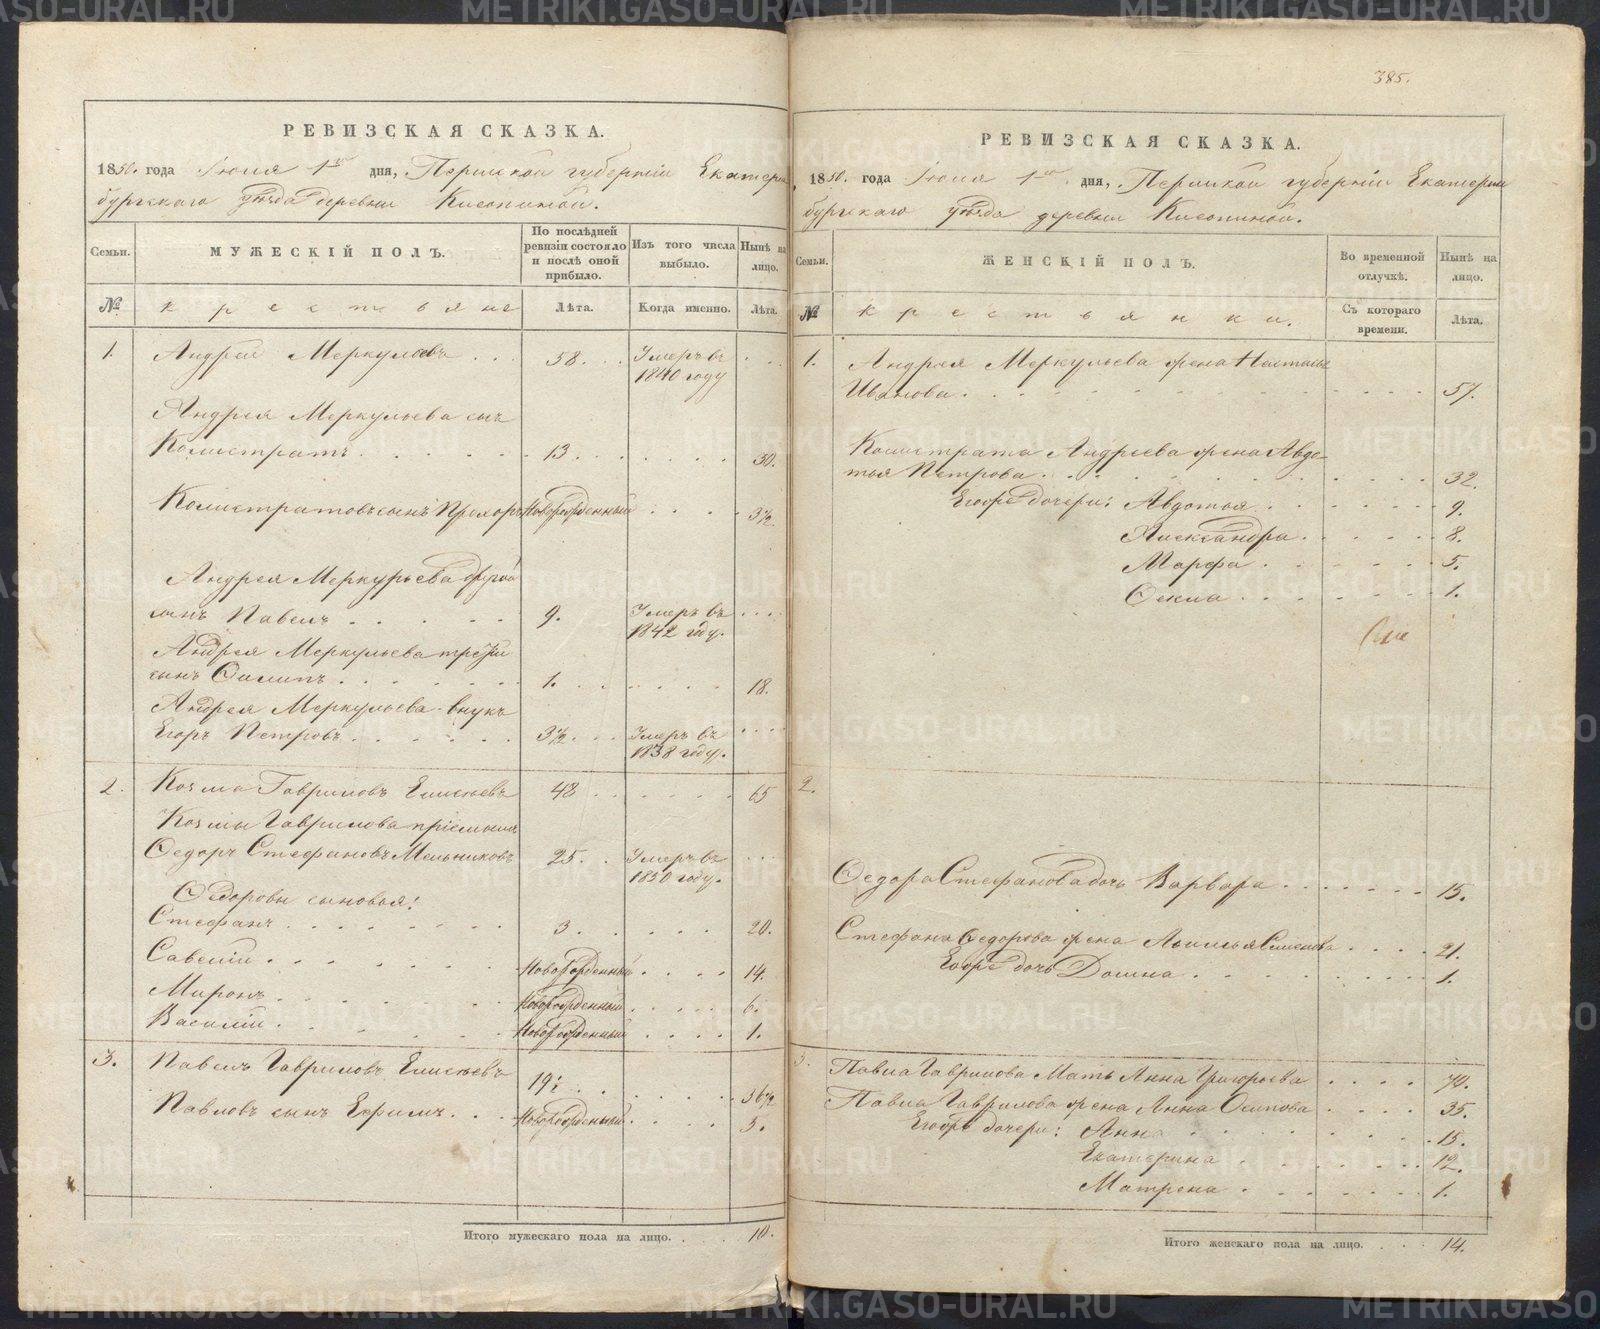 385.
РЕВИЗСКАЯ СКАЗКА.
1850. года Июня 1го дня, Пермской губерніи Екатерин
бургскаго уѣзда деревни
Семьи.
МУЖЕСКІЙ ПОЛЪ.
По послѣдней ревизіи состояло и послѣ оной прибыло.
Изъ того числа выбыло.
Нынѣ на лицо.
№
крестьяне
Лѣта.
Когда именно.
Лѣта.
1. Андрей Меркульевъ . . . 58. . . Умеръ въ 1840 году . . .
Андрея Меркульева сынъ
Калистратъ . . . . . . 13. . . . . . . 30.
Калистратовъ сынъ Прохоръ Новорожденный . . . . 3½.
Андрея Меркурьева другой
сынъ Павелъ . . . . . 9. Умеръ въ 1842 году. . . .
Андрея Меркульева третій
сынъ Филипъ . . . . . . . 1. . . . . . . 18.
Андрея Меркульева внукъ
Егоръ Петровъ . . . . . . 3½. . . Умеръ въ 1838 году. . . .
2. Козма Гавриловъ Елисѣевъ 48 . . . . . . 65
Козмы Гаврилова пріемышъ
Федоръ Стефановъ Мельниковъ 25. . Умеръ въ 1850 году. . . .
Федоровы сыновья:
Стефанъ . . . . . . . . 3. . . . . . 20.
Савелій . . . . . . . . Новорожденный . . . . 14.
Миронъ . . . . . . . . Новорожденный . . . . 6.
Василій . . . . . . . . Новорожденный . . . . 1.
3. Павелъ Гавриловъ Елисѣевъ 19. . . . . . . 36½
Павловъ сынъ Ефимъ . . . Новорожденный . . . . 5.
Итого мужескаго пола на лицо. . . . 10.
РЕВИЗСКАЯ СКАЗКА.
1850. года Июня 1го дня, Пермской губерніи Екатерин
бургскаго уѣзда деревни
Семьи.
ЖЕНСКІЙ ПОЛЪ.
Во временной отлучкѣ.
Нынѣ на лицо.
№
крестьянки.
Съ котораго времени.
Лѣта.
1. Андрея Меркульева жена Наталья
Иванова . . . . . . . . . . . . 57.
Калистрата Андреева жена Авдо-
тья Петрова . . . . . . . . . . . 32.
Егожъ дочери: Авдотья . . . . . . . 9.
Александра . . . . . . 8.
Марфа . . . . . . . 5.
Фекла . . . . . . . 1.
2.
Федора Стефанова дочь Варвара . . . . . . . 15.
Стефана Федорова жена Акилина Семенова . . . . 21.
Егожъ дочь Домна . . . . . . . . . 1.
3. Павла Гаврилова Мать Анна Григорьева . . . . 70.
Павла Гаврилова жена Анна Осипова . . . . 35.
Егожъ дочери: Анна . . . . . . . . . 15.
Екатерина . . . . . . . 12.
Матрена . . . . . . . 1.
Итого женскаго пола на лицо. . . . 14.
METRIKI.GASO-URAL.RU